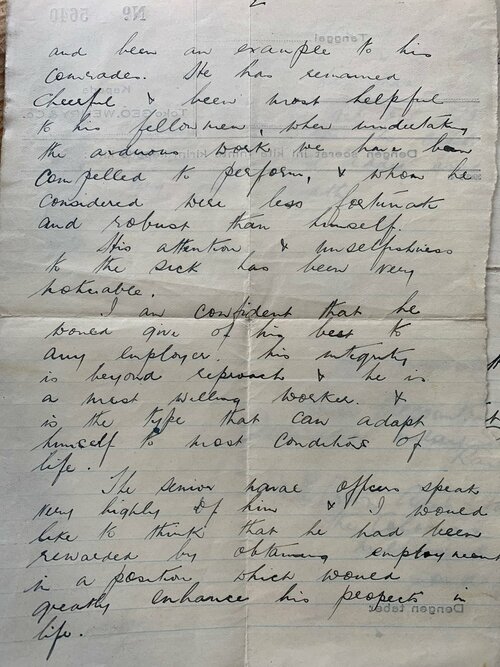 2
and been an example to his
comrades. He has remained
cheerful & been most helpful
to his fellow men, when undertaking
the arduous work we have been
compelled to perform, & whom he
considered were less fortunate
and robust than himself.
His attention & unselfishness
to the sick has been very
noticable.
I am confident that he
would give of his best to
any employer. his integrity
is beyond reproach & he is
a most willing worker. &
is the type that can adapt
himself to most conditions of
life.
The senior naval officers speak
very highly of him & I would
like to think that he had been
rewarded by obtaining employment
in a position which would
greatly enhance his prospects in
life.
No 5640
Tanggal
Kepada
Toko GEO. WEHRY & Co.
Dengen soerat ini kita
Dengen tabee